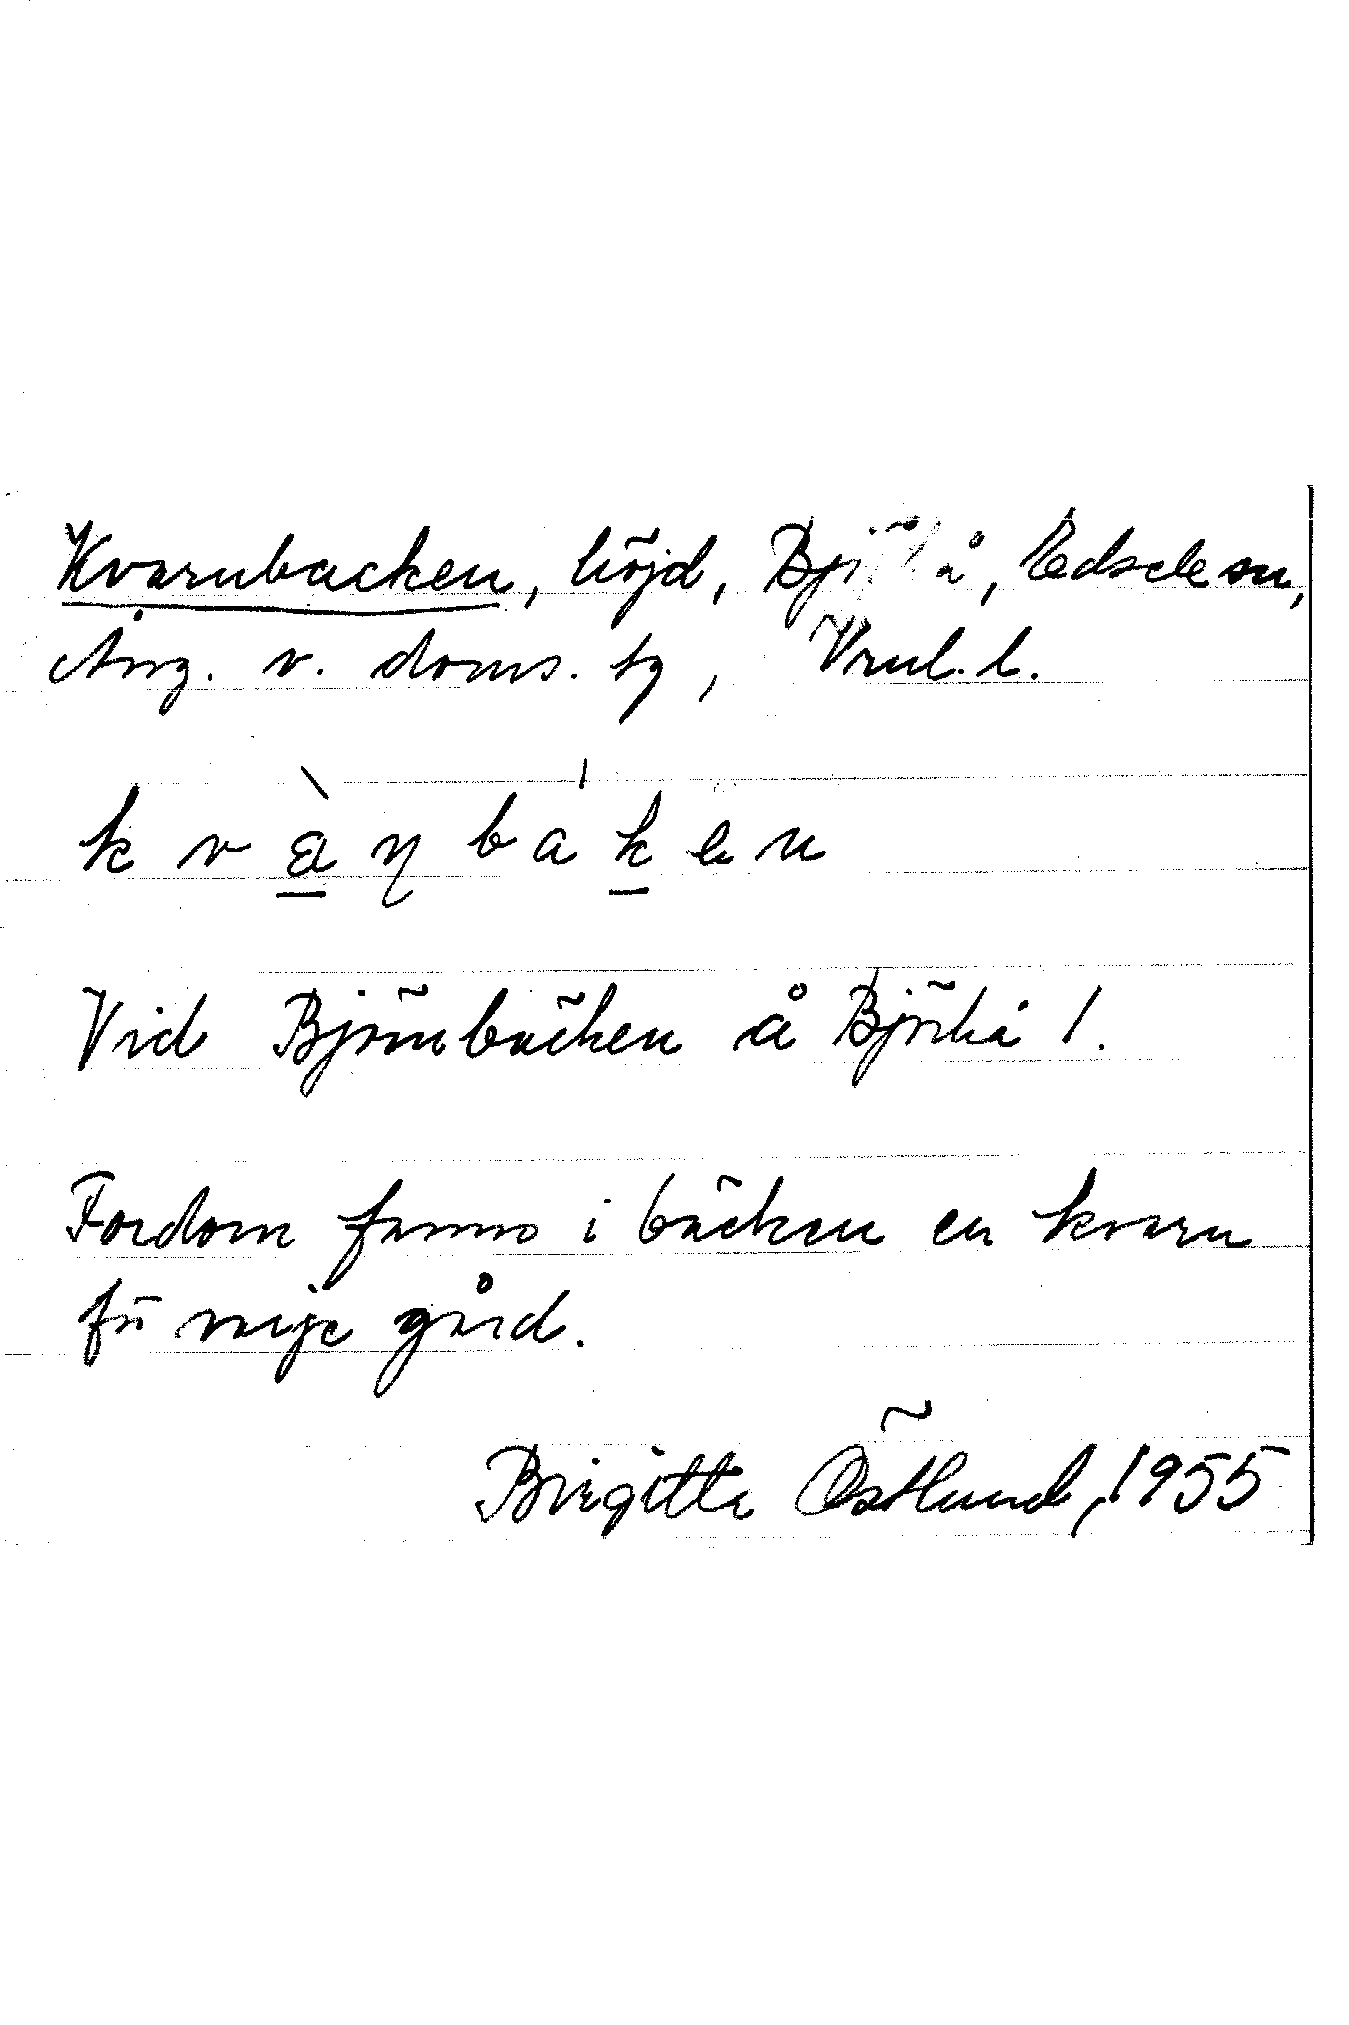 Kvarnbacken, höjd, Björkå, Edsele sn,
Ång. v. doms. tg, Vrnl. l.
k v à ŋ b a k e n
Vid Björnbäcken å Björkå 1.
Fordom fanns i bäcken en kvarn
för varje gård.
Birgitta Östlund, 1955